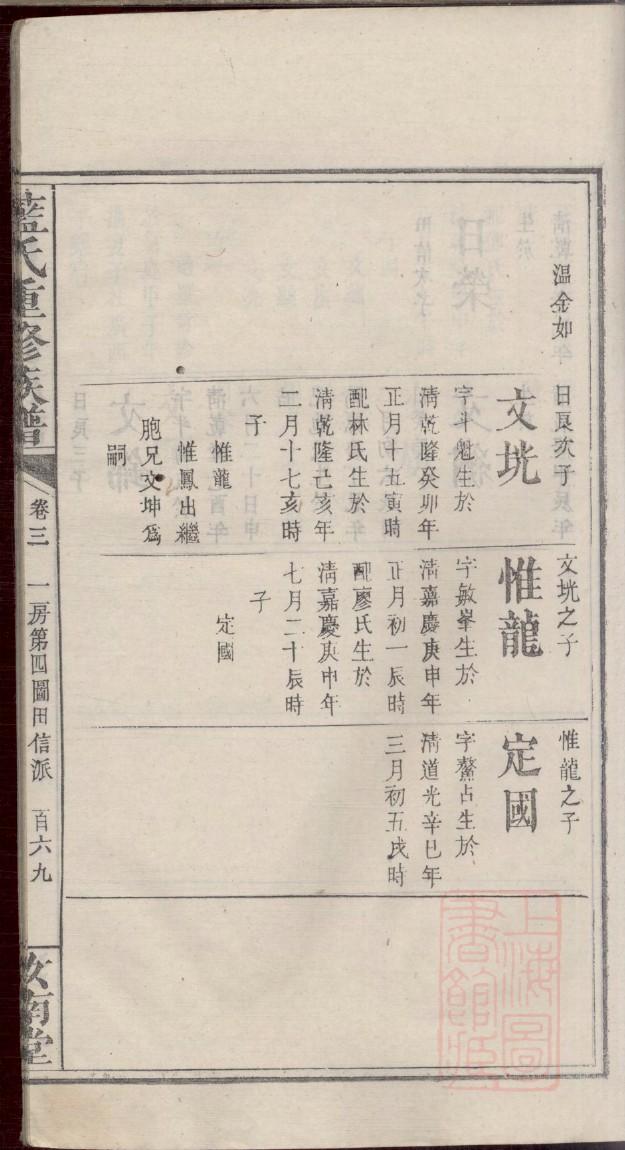 溫金如
日長次子
文垙
字斗魁生於
清乾隆癸卯年
正月十五寅時
配林氏生於
清乾隆己亥年
二月十七亥時
子
惟龍
惟鳳出繼
胞兄文坤爲
嗣
文垙之子
惟龍
字敏峯生於
清嘉慶庚申年
正月初一辰時
配廖氏生於
清嘉慶庚申年
七月二十辰時
子
定國
惟龍之子
定國
字鰲占生於
清道光辛巳年
三月初五戌時
藍氏重修族譜
卷三
一房第四圖田信派
百六九
汝南堂
上海圖
書館藏